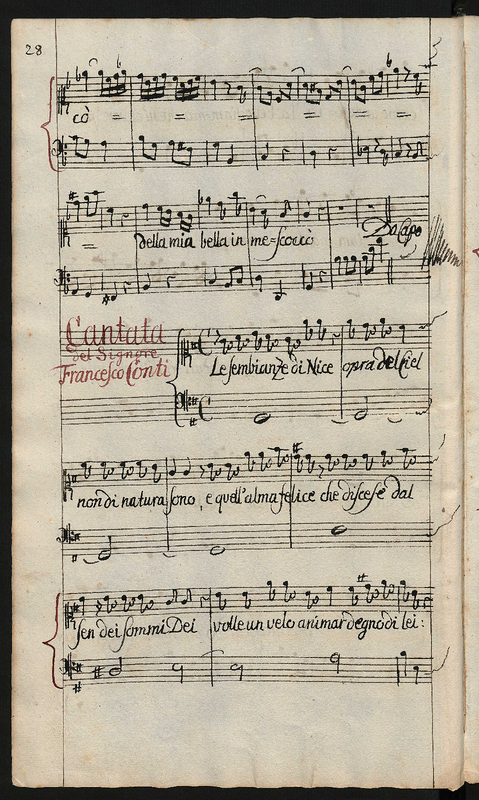 28
cò
della mia bella in me=scoccò Da Capo
Cantata
del Signore
Francesco Conti
Le sembianze di Nice opra del Ciel
non di natura sono, e quell'alma felice che discese dal
sen dei sommi Dei volle un velo animar degno di lei: